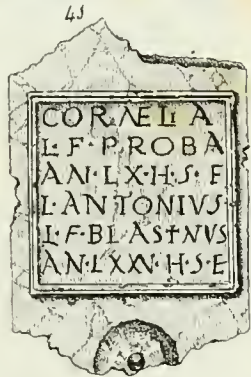 45
CORNELI A
L·F·PROBA
AN·LX·H·S·E
L·ANTONIVS·
L·F·BLASTNVS
AN·LXXV·H·S·E